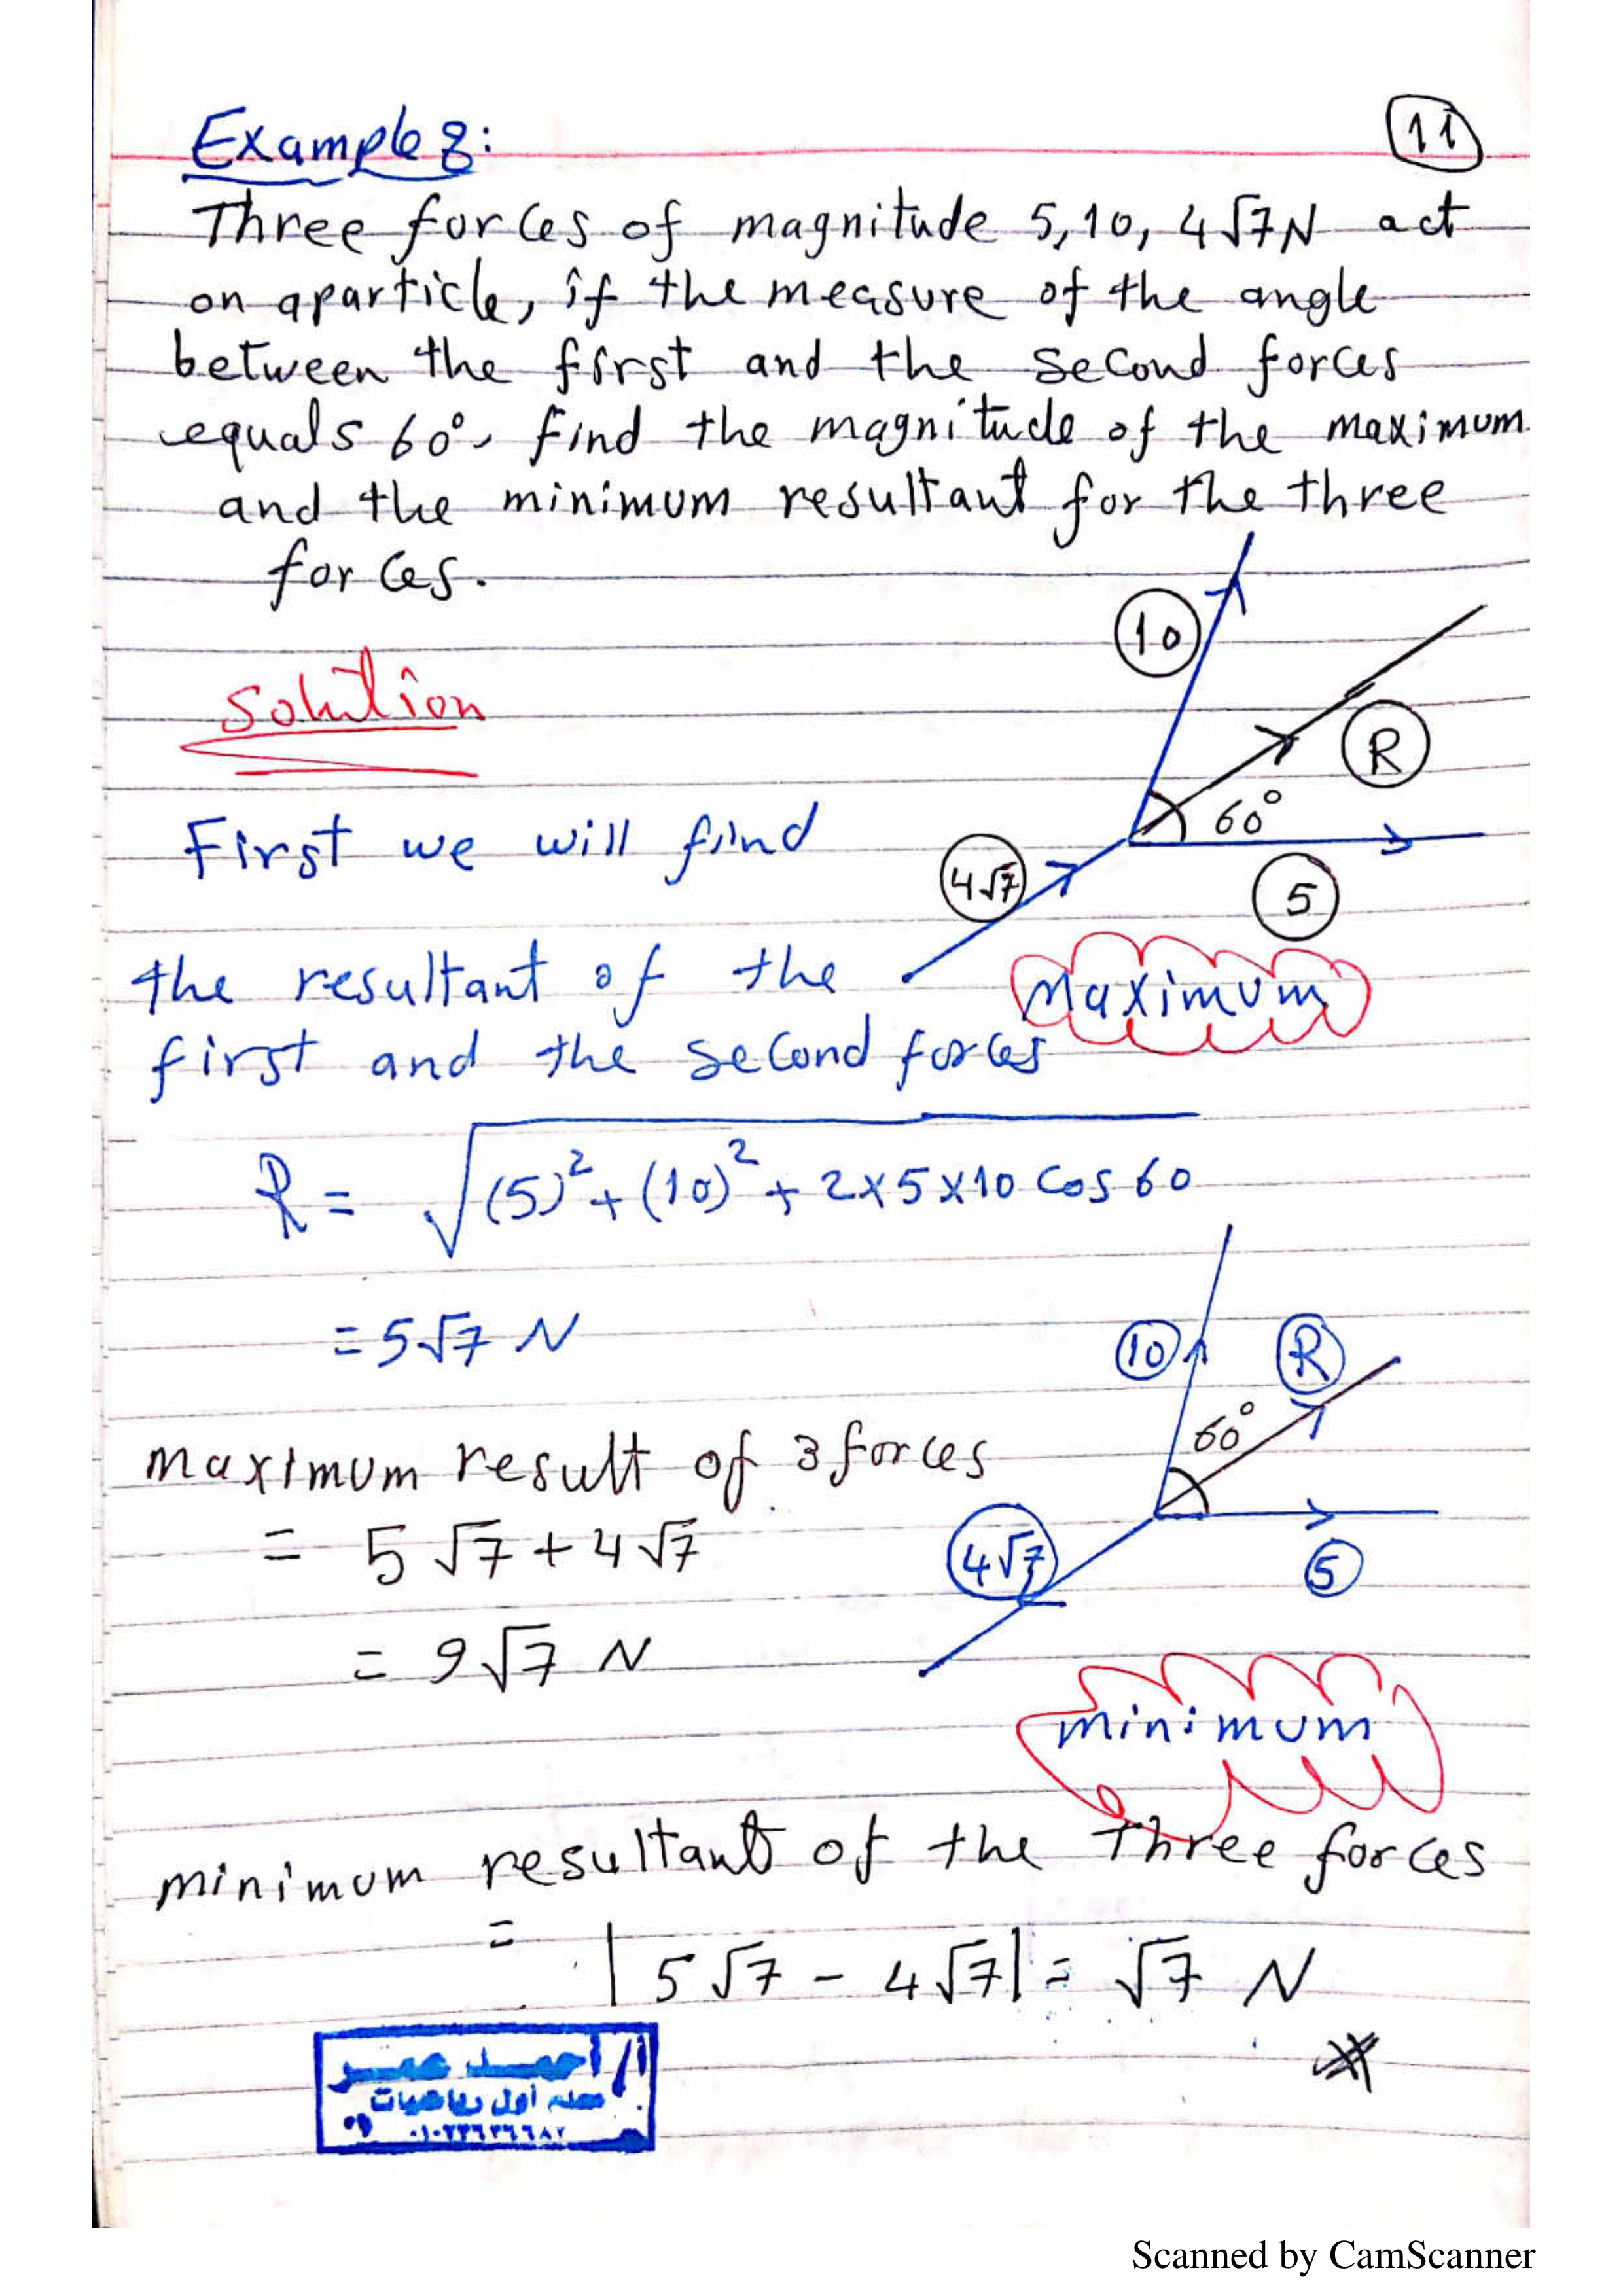 Example 8:
11
Three forces of magnitude 5, 10, 4√7 N act
on a particle, if the measure of the angle
between the first and the second forces
equals 60°, find the magnitude of the maximum
and the minimum resultant for the three
forces.
10
Solution
R
60°
First we will find
4√7
5
the resultant of the
Maximum
first and the second forces
R = √(5)² + (10)² + 2×5×10 cos 60
= 5√7 N
10
R
60°
maximum result of 3 forces
= 5√7 + 4√7
4√7
5
= 9√7 N
minimum
minimum resultant of the three forces
= |5√7 - 4√7| = √7 N
أ/ أحمد عمر
معلم أول رياضيات
Scanned by CamScanner